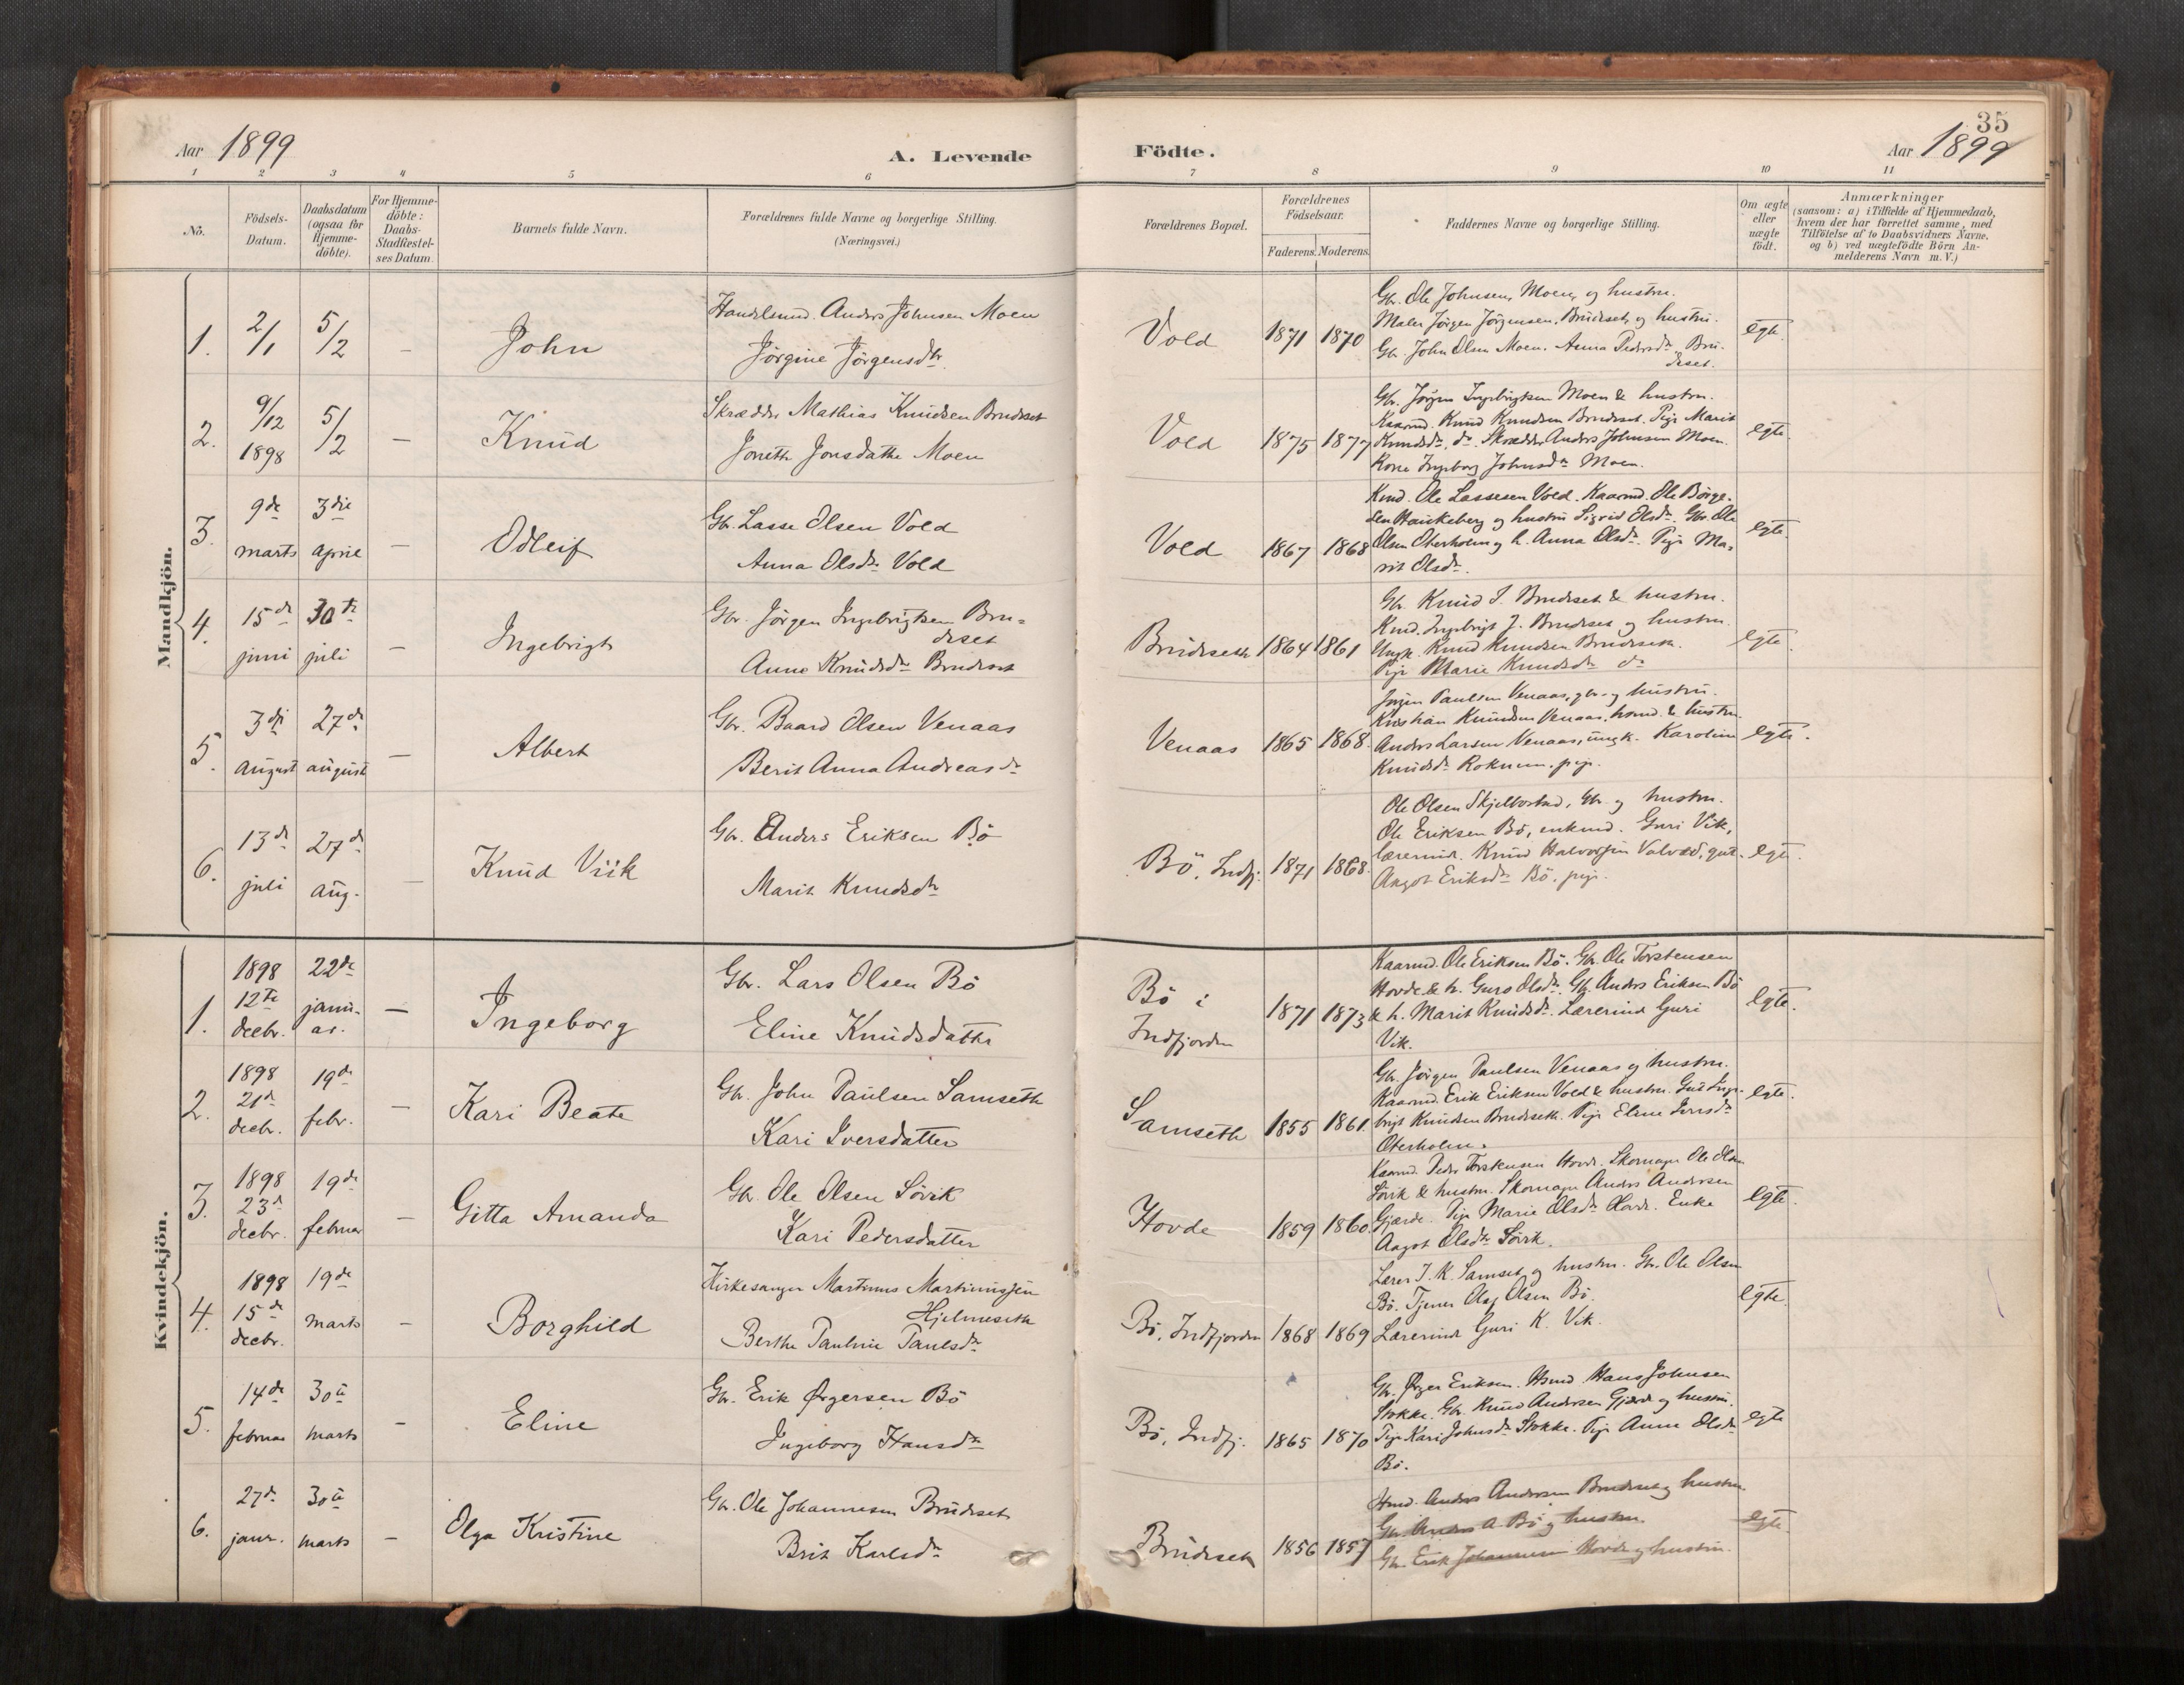 35
Aar 1899
A. Levende
Födte.
Aar 1899
1 2 3 4 5 6 7 8 9 10 11
No.
Födsels-
Datum.
Daabsdatum
(ogsaa for
Hjemme-
döbte).
For Hjemme-
döbte:
Daabs-
Stadfæstel-
ses Datum.
Barnets fulde Navn.
Forældrenes fulde Navne og borgerlige Stilling.
(Næringsvei.)
Forældrenes Bopæl.
Forældrenes
Födselsaar.
Faderens. Moderens.
Faddernes Navne og borgerlige Stilling.
Om ægte
eller
uægte
födt.
Anmærkninger
(saasom: a) i Tilfælde af Hjemmedaab,
hvem der har forrettet samme, med
Tilföielse af to Daabsvidners Navne.
og b) ved uægtefödte Börn An-
melderens Navn m. V.)
Mandkjön.
1.
2/1
5/2
–
John
Handelsmd. Anders Johnsen Moen
Jörgine Jörgensdtr.
Vold
1871 1870
Gbr. Ole Johnsen Moen og hustru.
Maler Jörgen Jörgensen Brudeset og hustru.
Gbr. John Olsen Moen. Anna Pedersdr Bru-
deset.
egte.
2.
9/12
1898
5/2
–
Knud
Skrædder Mathias Knudsen Brudeset
Joneth Jonsdatter Moen
Vold
1875 1877
Gbr. Jörgen Ingebrigtsen Moen & hustru.
Kaarmd. Knud Knudsen Brudeset. Pige Marit
Knudsdr. do. Skrædder Anders Johnsen Moen.
Kone Ingeborg Johnsdr Moen.
egte.
3.
9de
marts
3die
april
–
Odleif
Gbr. Lasse Olsen Vold
Anna Olsdr. Vold
Vold
1867 1868
Kmd. Ole Lassesen Vold. Kaarmd. Ole Börge-
sen Haukeberg og hustru Sigrid Olsdr. Gbr. Ole
Olsen Oterholm og h. Anna Olsdr. Pige Ma-
rit Olsdr.
egte.
4.
15de
juni
30te
juli
–
Ingebrigt
Gbr. Jörgen Ingebrigtsen Bru-
deset
Anne Knudsdr Brudeset
Brudeseth
1864 1861
Gbr. Knud J. Brudeset & hustru.
Kmd. Ingebrigt J. Brudeset og hustru.
Ungk. Knud Knudsen Brudeseth.
Pige Marie Knudsdr do
egte.
5.
3die
august
27de
august
–
Albert
Gbr. Baard Olsen Venaas
Berit Anna Andreasdr
Venaas
1865 1868.
Jörgen Paulsen Venaas, gbr. og hustru.
Kristian Knudsen Venaas, hsmd. & hustru.
Anders Larsen Venaas, ungk. Karoline
Knudsdr Roknem. pige.
egte.
6.
13de
juli
27de
aug.
–
Knud Viik
Gbr. Anders Eriksen Bö
Marit Knudsdtr
Bö, Indfj.
1871 1868.
Ole Olsen Skjelbostad, Gbr. og hustru.
Ole Eriksen Bö, enkmd. Guri Vik,
lærerinde. Knud Halvorsen
Angot Eriksdr Bö. pige.
egte.
Kvindekjön.
1.
1898
12te
decbr.
22de
janu-
ar.
–
Ingeborg
Gbr. Lars Olsen Bö
Eline Knudsdatter
Bö i
Indfjorden
1871 1873
Kaarmd. Ole Eriksen Bö. Gbr. Ole Torstensen
Hovde & h. Guro Olsdr. Gbr. Anders Eriksen Bö
& h. Marit Knudsdr. Lærerinde Guri
Vik.
egte.
2.
1898
21de
decbr.
19de
febr.
–
Kari Beate
Gbr. John Paulsen Samseth
Kari Iversdatter
Samseth
1855 1861.
Gbr. Jörgen Paulsen Venaas og hustru.
Kaarmd. Erik Eriksen Vold & hustru. Gut Inge-
brigt Knudsen Brudeseth. Pige Eline Iversdr
Oterholm.
egte.
3.
1898
23de
decbr.
19de
februar
–
Gitta Amanda
Gbr. Ole Olsen Sörik
Kari Pedersdatter
Hovde
1859 1860.
Kaarmd. Peder Torstensen Hovde. Skomager Ole Olsen
Sövik & hustru. Skomager Anders Andersen
Gjærde. Pige Marie Olsdr Hovde. Enke
Aagot Olsdr Sövik.
egte.
4.
1898
15de
decbr.
19de
marts
–
Borghild
Kirkesanger Martinus Martinussen
Hjelmeseth
Berthe Pauline Paulsdr
Bö, Indfjorden
1868 1869
Lærer I. K. Samset og hustru. Gbr. Ole Olsen
Bö. Tjener Olaf Olsen Bö.
Lærerinde Guri K. Vik.
egte.
5.
14de
februar
30te
marts
–
Eline
Gbr. Erik Ørgersen Bö
Ingeborg Hansdr
Bö, Indfj.
1865 1870
Gbr. Ørger Eriksen. Hsmd. Hans Johnsen
Stokke. Gbr. Knud Andersen Gjærde og hustru.
Pige Kari Johnsdr Stokke. Pige Anne Olsdr
Bö.
egte
6.
27de
janr.
30te
marts
–
Olga Kristine
Gbr. Ole Johannesen Brudeset
Brit Karlsdr
Brudeseth
1856 1857
Hsmd. Anders Andersen Brudeset og hustru
Gbr. Anders A. Bö og hustru.
Gbr. Erik Johannesen Hovde og hustru.
egte.